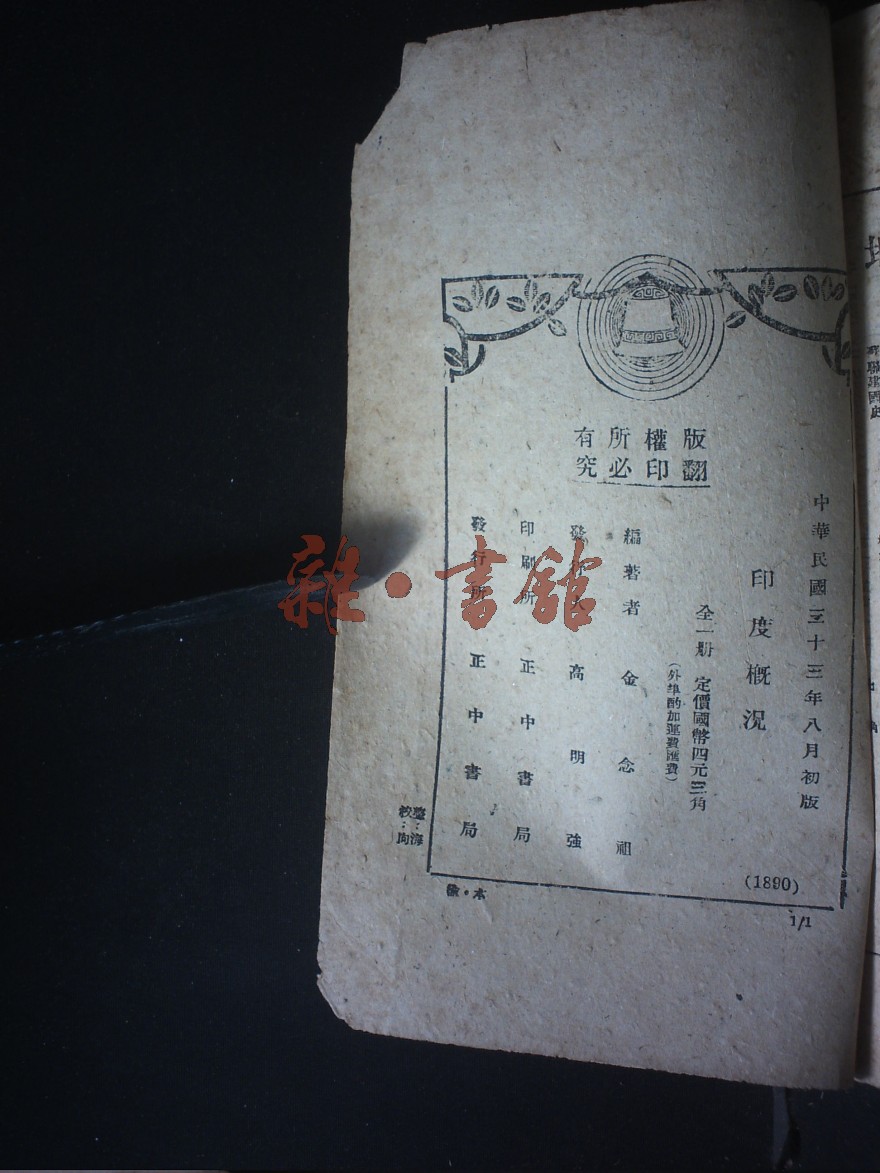 版權所有
翻印必究
中華民國三十三年八月初版
印度概況
全一册 定價國幣四元三角
(外埠酌加運費匯費)
編著者 金念祖
發行人 高明強
印刷所 正中書局
發行所 正中書局
(1890)
1/1
雜·書館